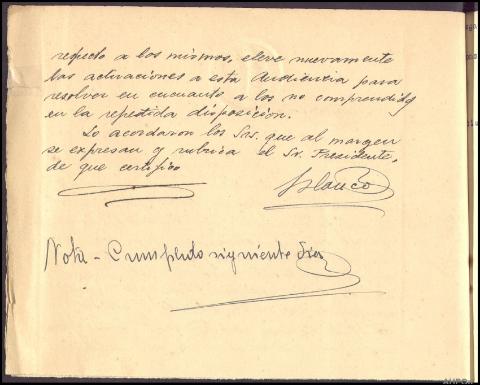 respecto a los mismos, eleve nuevamente
las actuaciones a esta Audiencia para
resolver en cuanto a los no comprendidos
en la repetida disposición.
Lo acordaron los Srs. que al margen
se expresan y rubrica el Sr. Presidente,
de que certifico
Blanco
Nota - Cumplido siguiente día